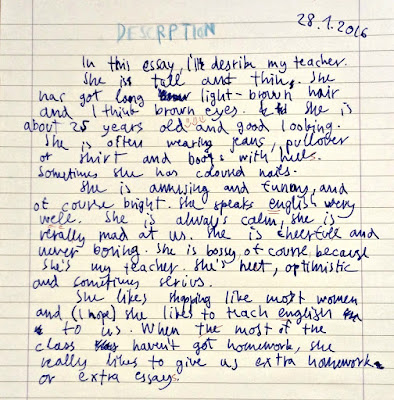 28.1.2016
DESCRPTION
In this essay, I'll desribe my teacher.
She is tall and thin. She
has got long light-brown hair
and I think brown eyes. She is
about 25 years old and good looking.
She is often wearing jeans, pullover
or shirt and boots with heels.
Sometimes she has coloured nails.
She is amusing and funny, and
of course bright. She speaks english wery
well. She is always calm, she is
rerally mad at us. She is cheerfull and
never boring. She is bossy, of course, because
she's my teacher. She's neet, optimistic
and sometimes serius.
She likes shopping like most women
and (I hope) she likes to teach english
to us. When the most of the
class haven't got homework, she
really likes to give us extra homework
or extra essay.